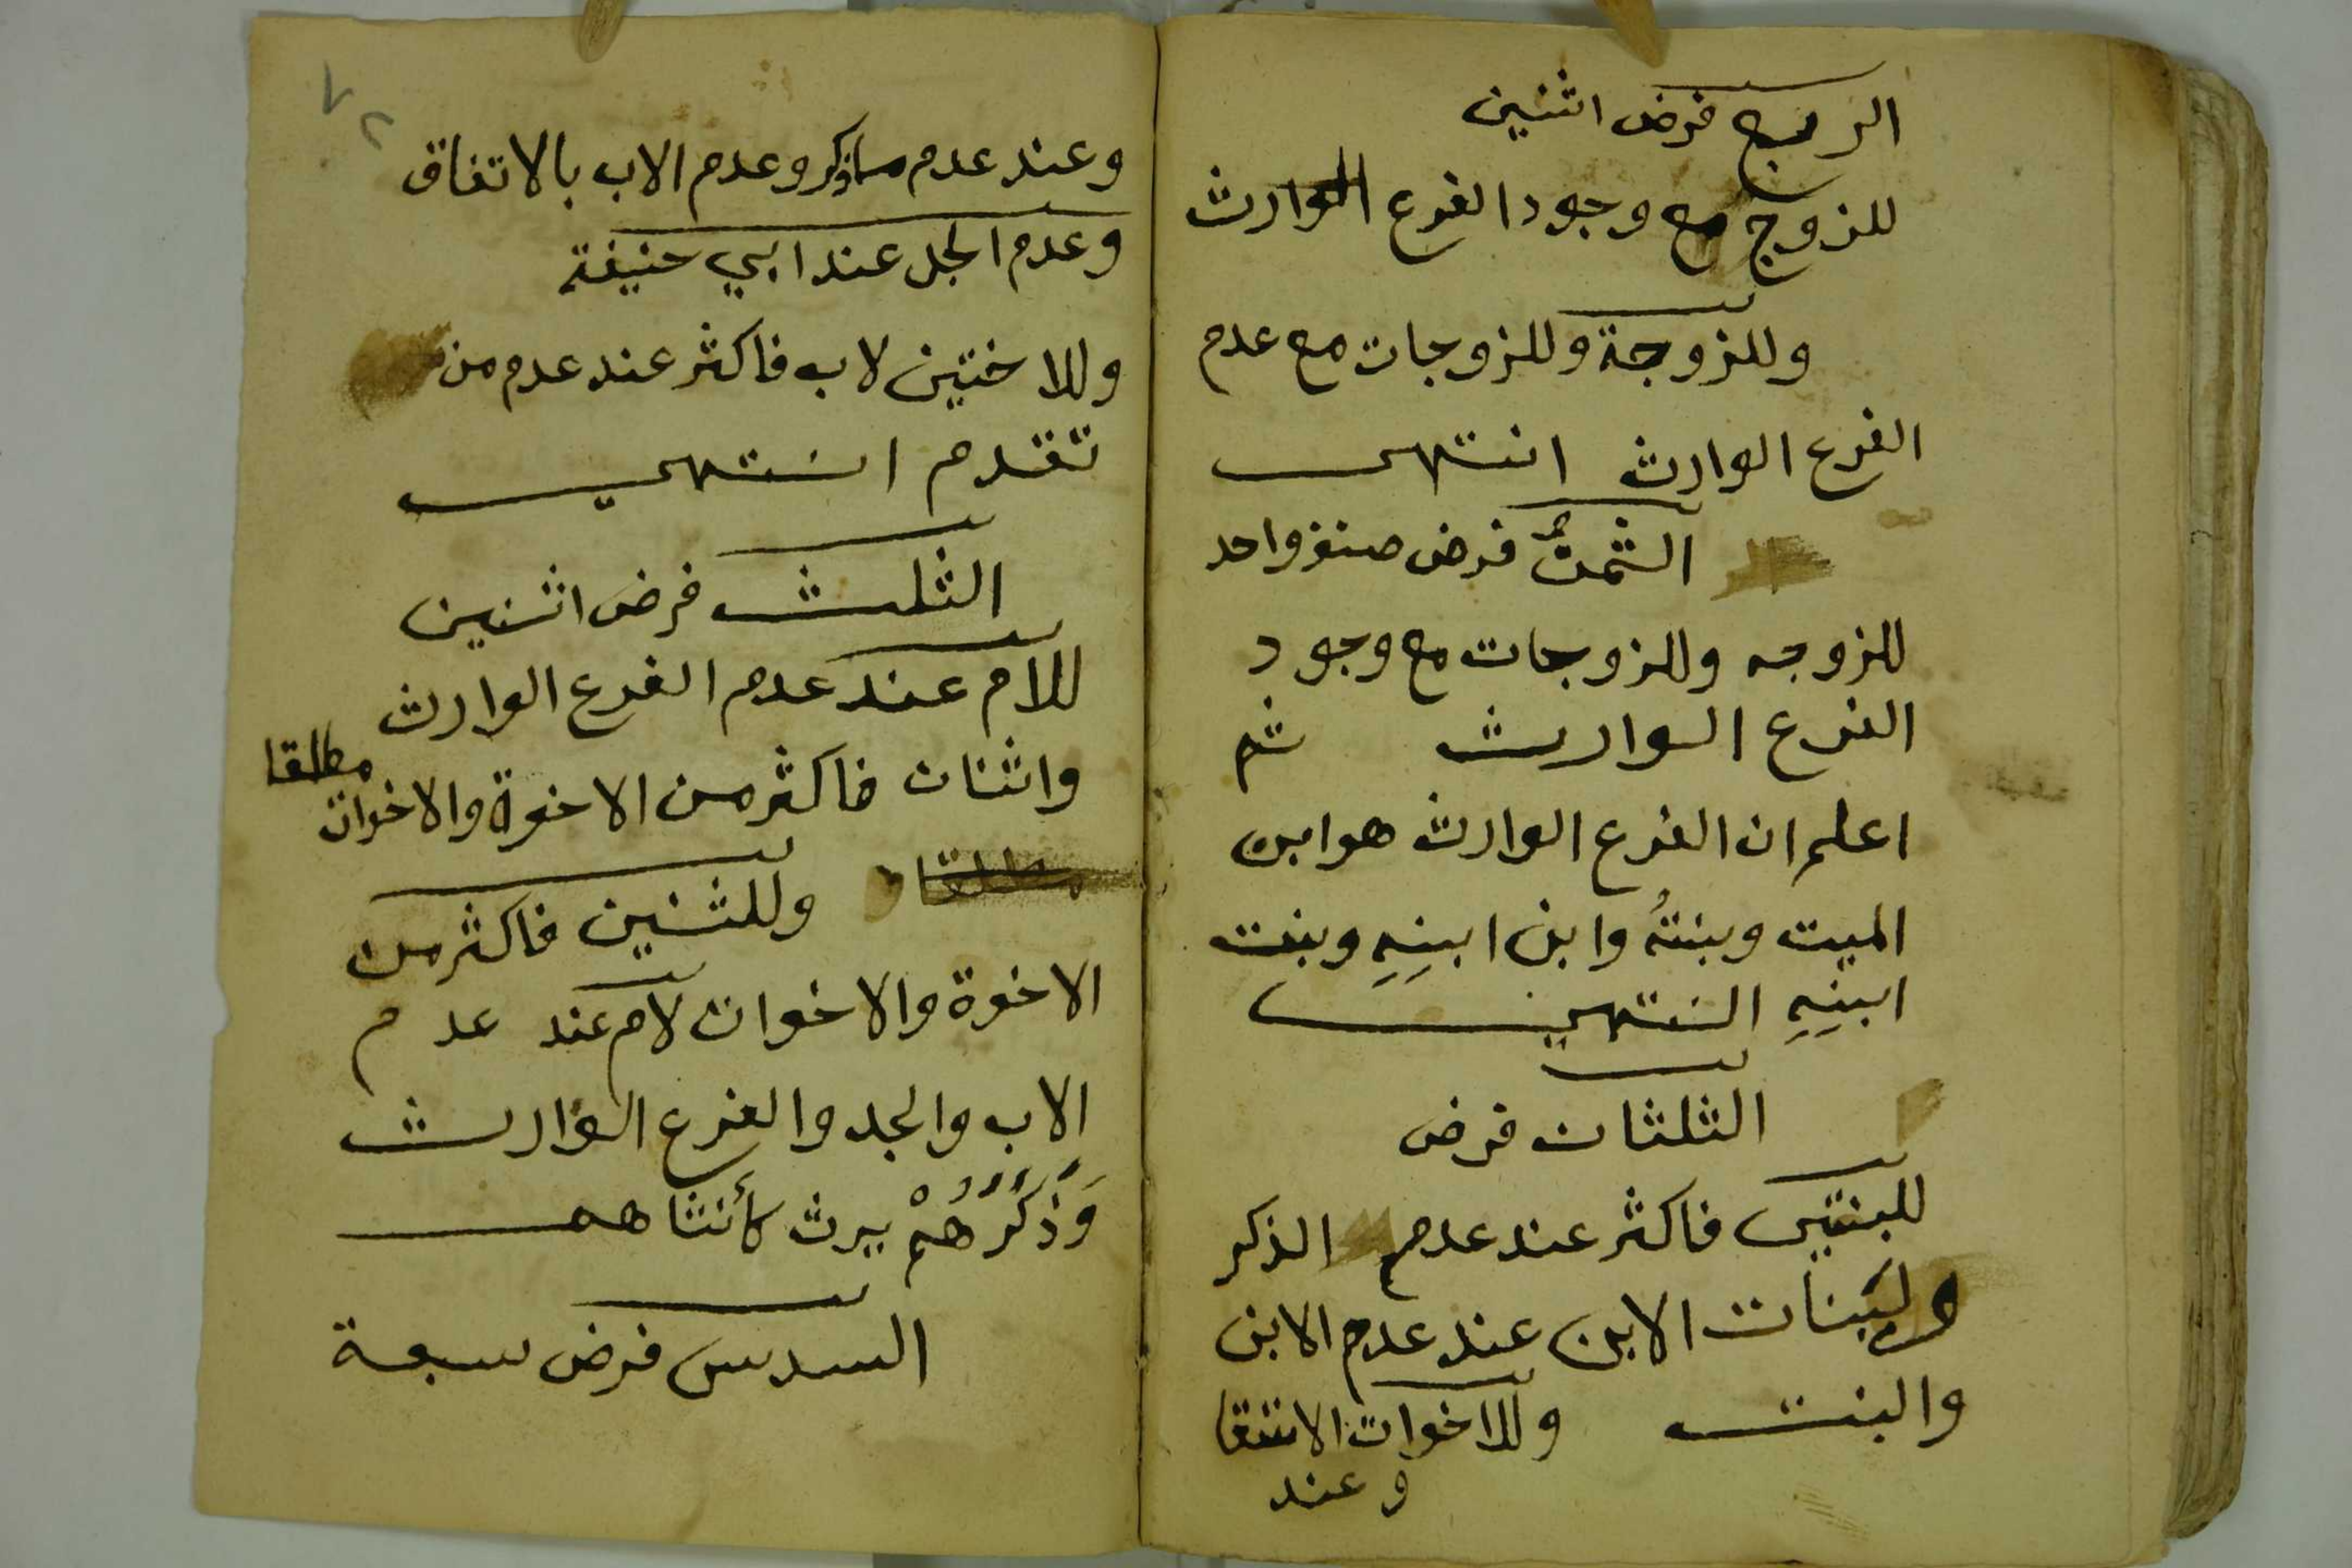 الربع فرض اثنين
للزوج مع وجود الفرع الوارث
وللزوجة وللزوجات مع عدم
الفرع الوارث انتهى
الثمن فرض صنف واحد
للزوجه وللزوجات مع وجود
الفرع الوارث ثم
اعلم ان الفرع الوارث هو ابن
الميت وبنتُه وابن ابنِهِ وبنت
ابنِهِ انتهى
الثلثان فرض
للبنتين فاكثر عند عدم الذكر
ولبَنات الابن عند عدم الابن
والبنت وللاخوات الاشقا
وعند
٧٢
وعند عدم ماذكر وعدم الاب بالاتفاق
وعدم الجد عند ابي حنيفة
وللاختين لاب فاكثر عند عدم من
تقدم انتهى
الثلث فرض اثنين
للام عند عدم الفرع الوارث
واثنان فاكثر من الاخوة والاخوات مطلقا
مطلقا وللثنين فاكثر من
الاخوة والاخوات لام عند عدم
الاب والجد والفرع الوارث
وَذَكَرُهُمْ يرث كأنثاهم
السدس فرض سبعة